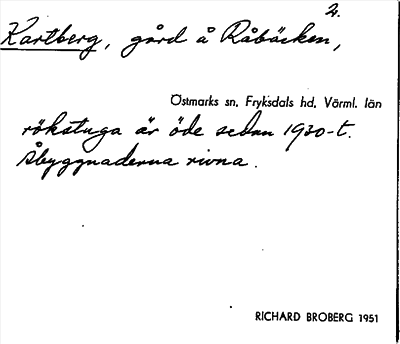 2.
Kartberg, gård å Råbäcken,
Östmarks sn, Fryksdals hd, Värml. län
rökstuga är öde sedan 1930-t.
Åbyggnaderna rivna.
RICHARD BROBERG 1951